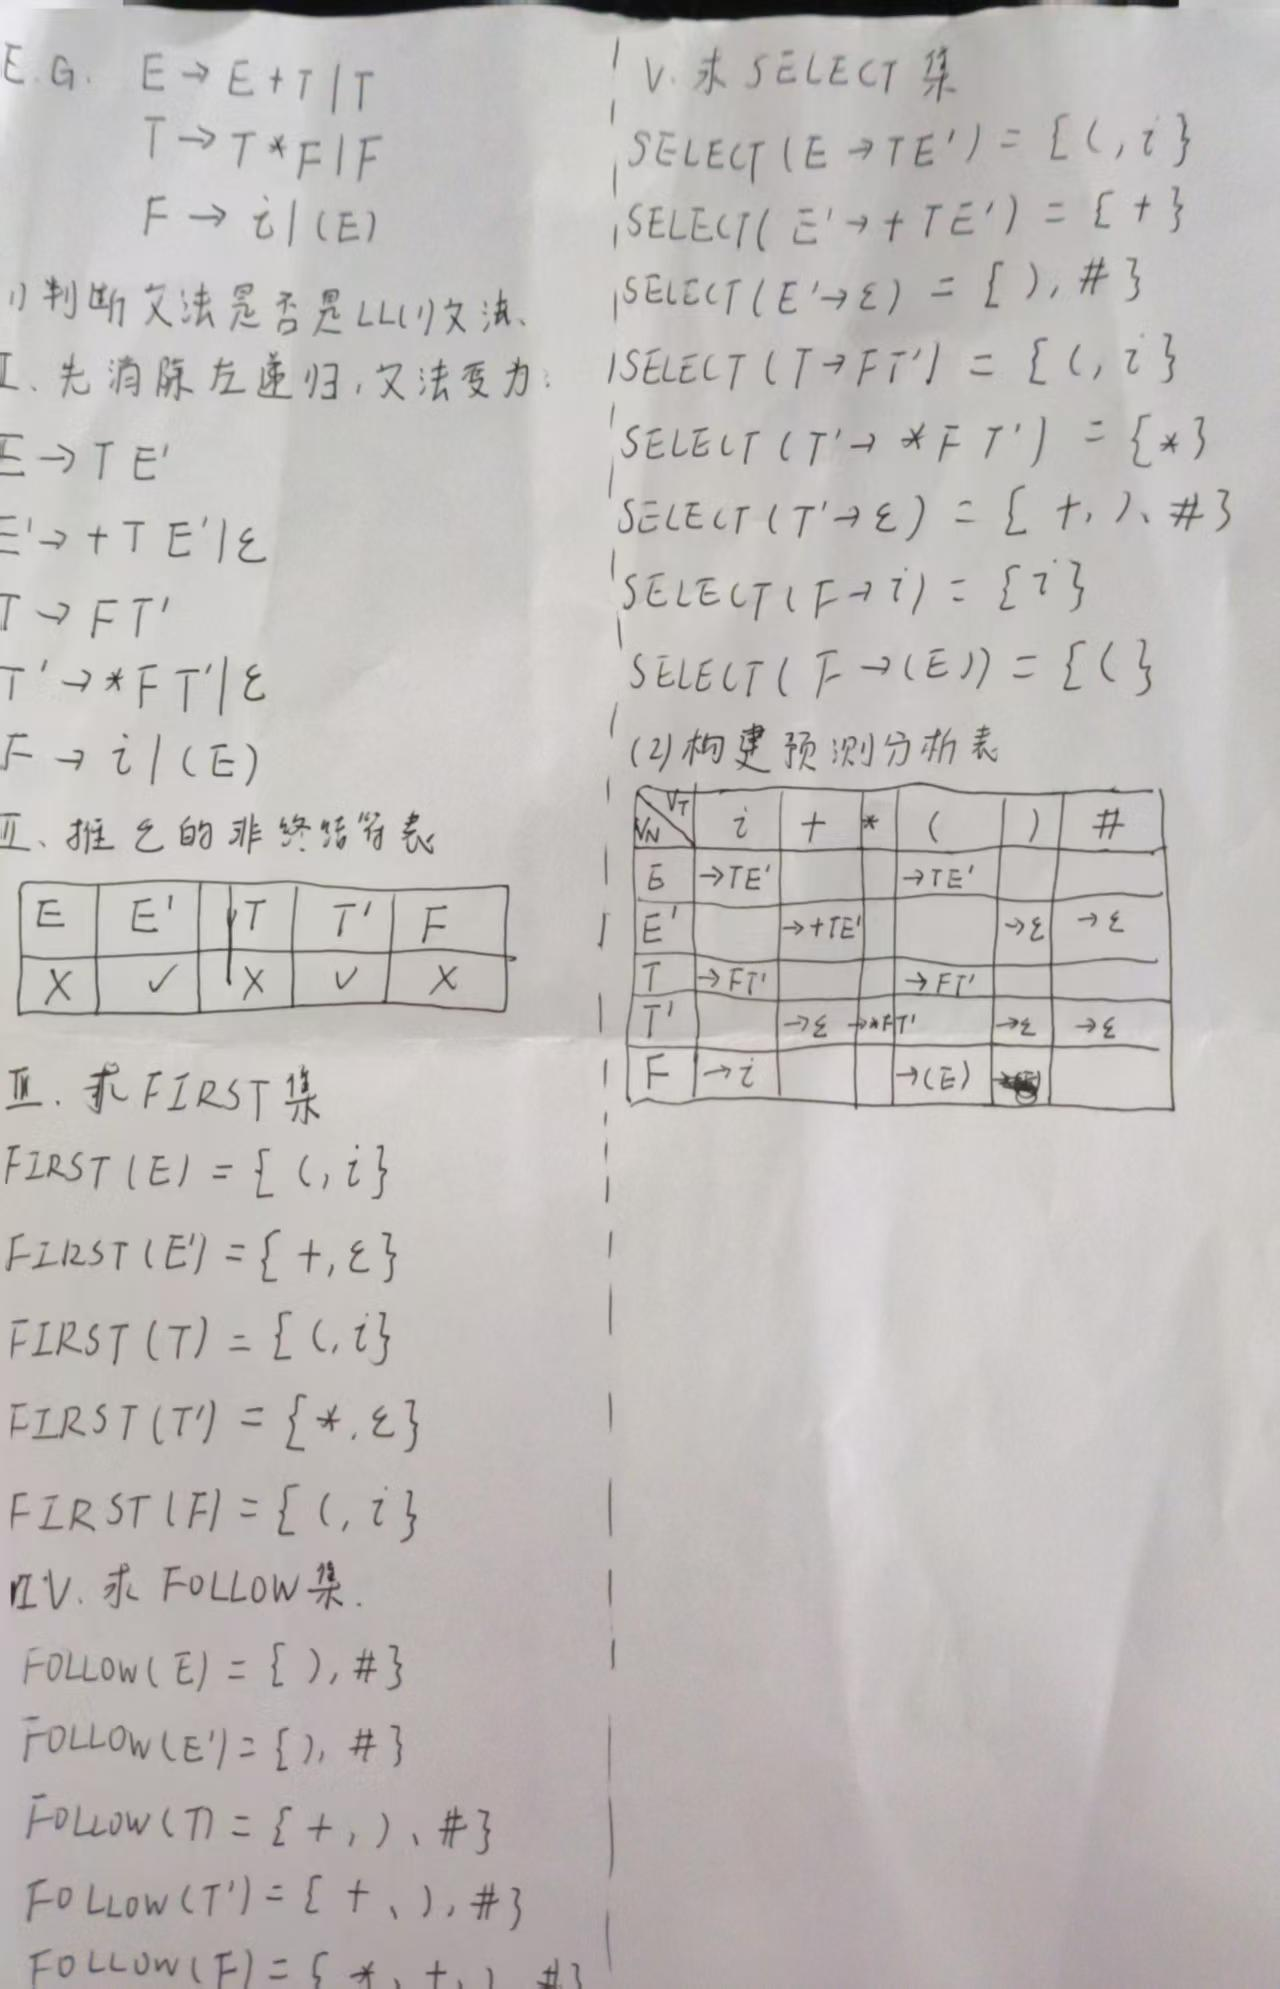 E.G. E→E+T|T
T→T*F|F
F→i|(E)
1)判断文法是否是LL(1)文法、
I、先消除左递归,文法变为:
E→TE'
E'→+TE'|ε
T→FT'
T'→*FT'|ε
F→i|(E)
II、推ε的非终结符表
E E' T T' F
X ✓ X ✓ X
III. 求FIRST集
FIRST(E)={(,i}
FIRST(E')={+,ε}
FIRST(T)={(,i}
FIRST(T')={*,ε}
FIRST(F)={(,i}
IV.求 FOLLOW集.
FOLLOW(E)={),#}
FOLLOW(E')={),#}
FOLLOW(T)={+,)、#}
FOLLOW(T')={+、),#}
FOLLOW(F)={*,+,),#}
V.求SELECT集
SELECT(E→TE')={(,i}
SELECT(E'→+TE')={+}
SELECT(E'→ε)={),#}
SELECT(T→FT')={(,i}
SELECT(T'→*FT')={*}
SELECT(T'→ε)={+,)、#}
SELECT(F→i)={i}
SELECT(F→(E))={(}
(2)构建预测分析表
VN VT i + * ( ) #
E →TE' →TE'
E' →+TE' →ε →ε
T →FT' →FT'
T' →ε →*FT' →ε →ε
F →i →(E)